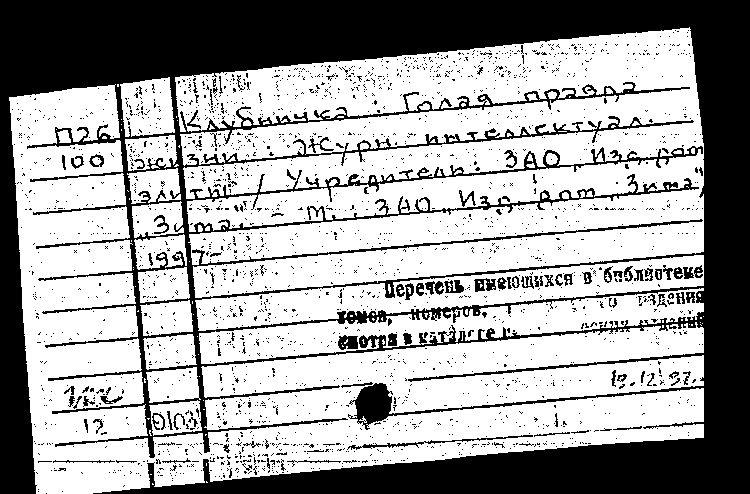 Клубничка : Голая правда
П26
100 жизни : Журн. интеллектуал.
элиты / Учредитель: ЗАО „Изд. дом
„Зима". - М. : ЗАО „Изд. дом „Зима",
1997-
Перечень имеющихся в библиотеке
томов, номеров, издания
смотри в каталоге
19.12.97.
12 0103